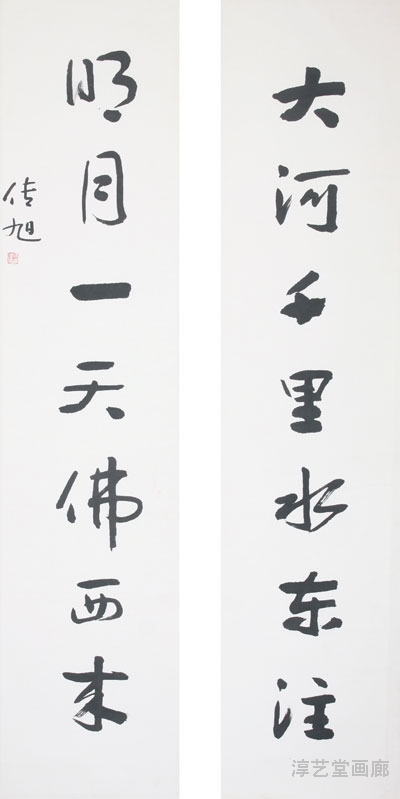 大河千里水东注
明月一天佛西来
传旭
淳艺堂画廊